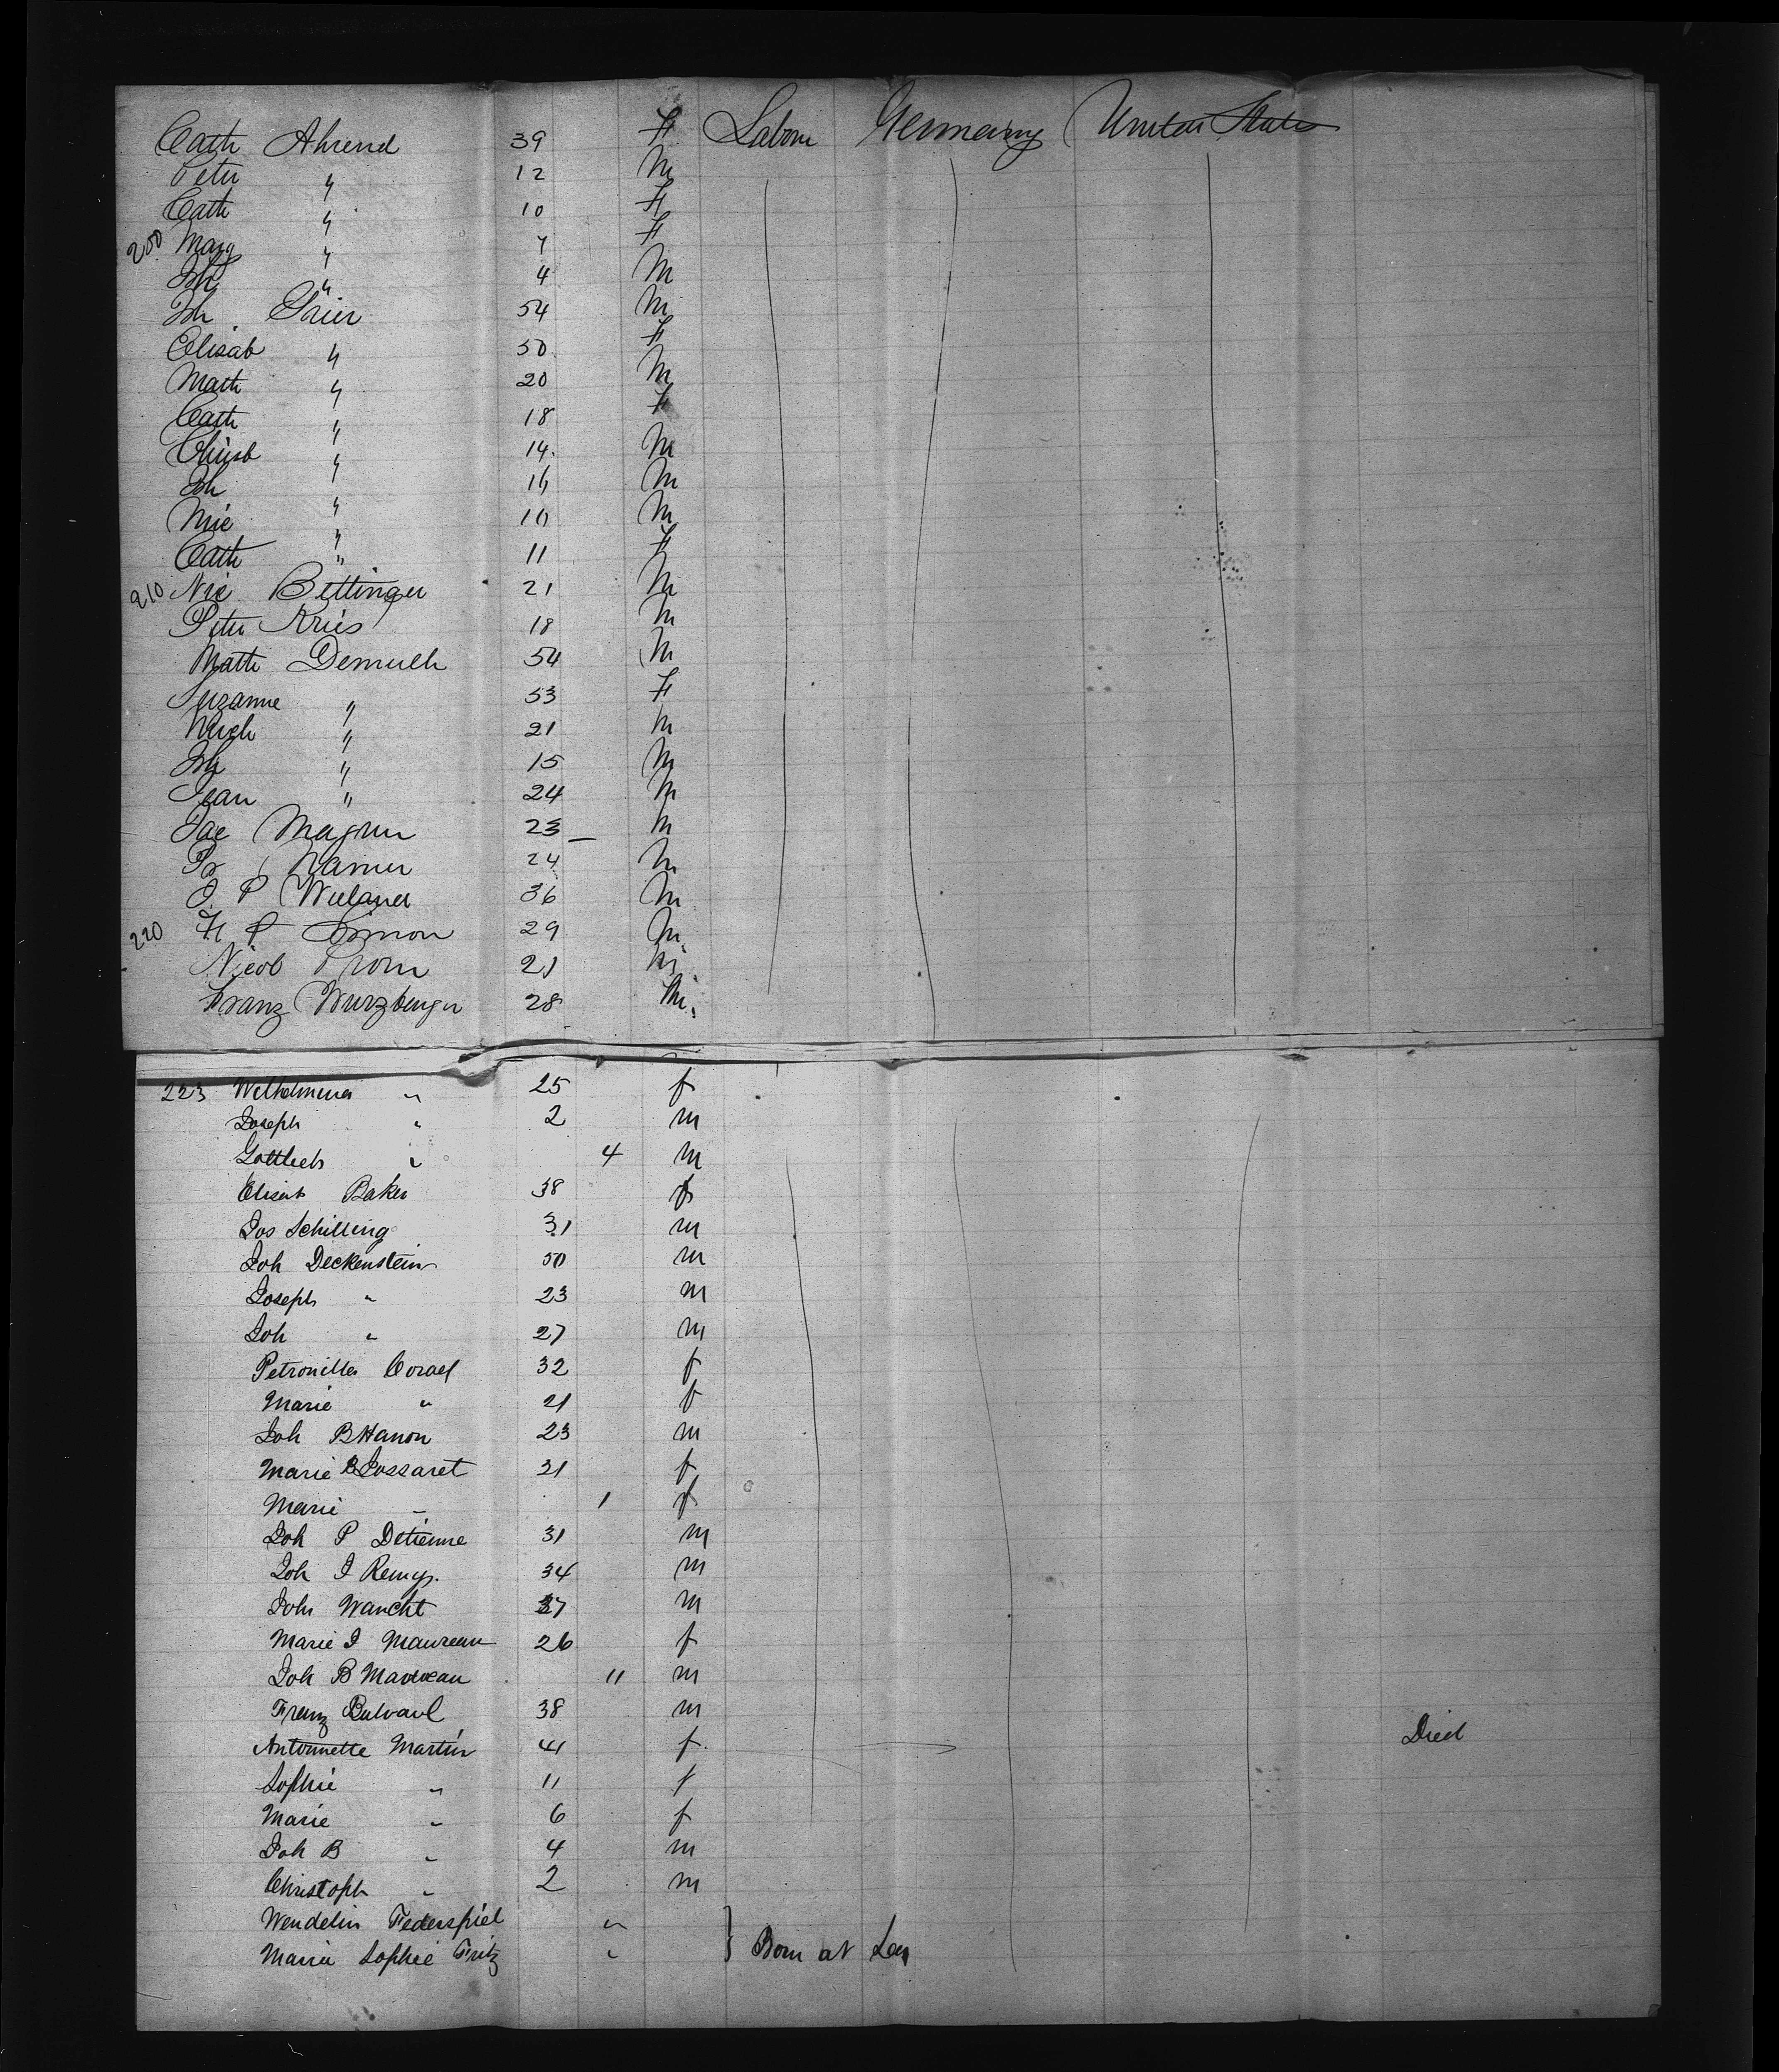 Cath Ahrend 39 F Labour Germany United States
Peter " 12 M
Cath " 10 F
200 Marg " 7 F
Joh " 4 M
Joh 54 M
Elisab " 50 F
Math " 20 M
Cath " 18 F
" 14 M
Joh " 16 M
Nic " 10 M
Cath " 11 F
210 Nic Bettinger 21 M
Peter Kries 18 M
Math Demuth 54 M
Suzanne " 53 F
Mich " 21 M
Joh " 15 M
Jean " 24 M
Jac 23 M
24 M
J. P Wieland 36 M
220 H P Simon 29 M
Nicol Thom 21 M
Franz Wurzberger 28 M
223 Wilhelmena " 25 f
Joseph " 2 m
Gottlieb " 4 m
Elisab Baker 38 f
Jos Schilling 31 m
Joh Deckenstein 50 m
Joseph " 23 m
Joh " 27 m
Petronilla 32 f
Marie " 21 f
Joh B Hanon 23 m
Marie B Jossaret 21 f
Marie " 1 f
Joh P Detienne 31 m
Joh J Remy. 34 m
Joh Waucht 37 m
Marie J Maureau 26 f
Joh B Maureau 11 m
Franz 38 m
Antonnette Martin 41 f Died
Sophie " 11 f
Marie " 6 f
Joh B " 4 m
Christoph " 2 m
Wendelin Federspiel "
Maria Sophie Fritz " } Born at Sea